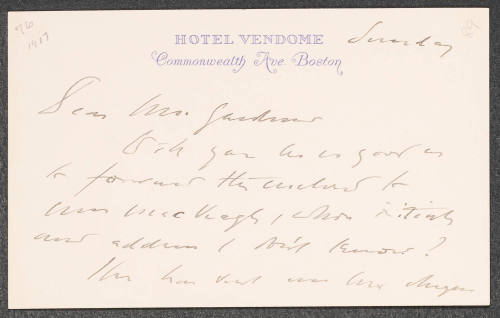 76
1917
89
HOTEL VENDOME
Commonwealth Ave. Boston
Sunday
Dear Mrs. Gardner
Will you be as good as
to forward the enclosed to
Mrs MacVeagh, whose initials
and address I don't know?
She has sent me her